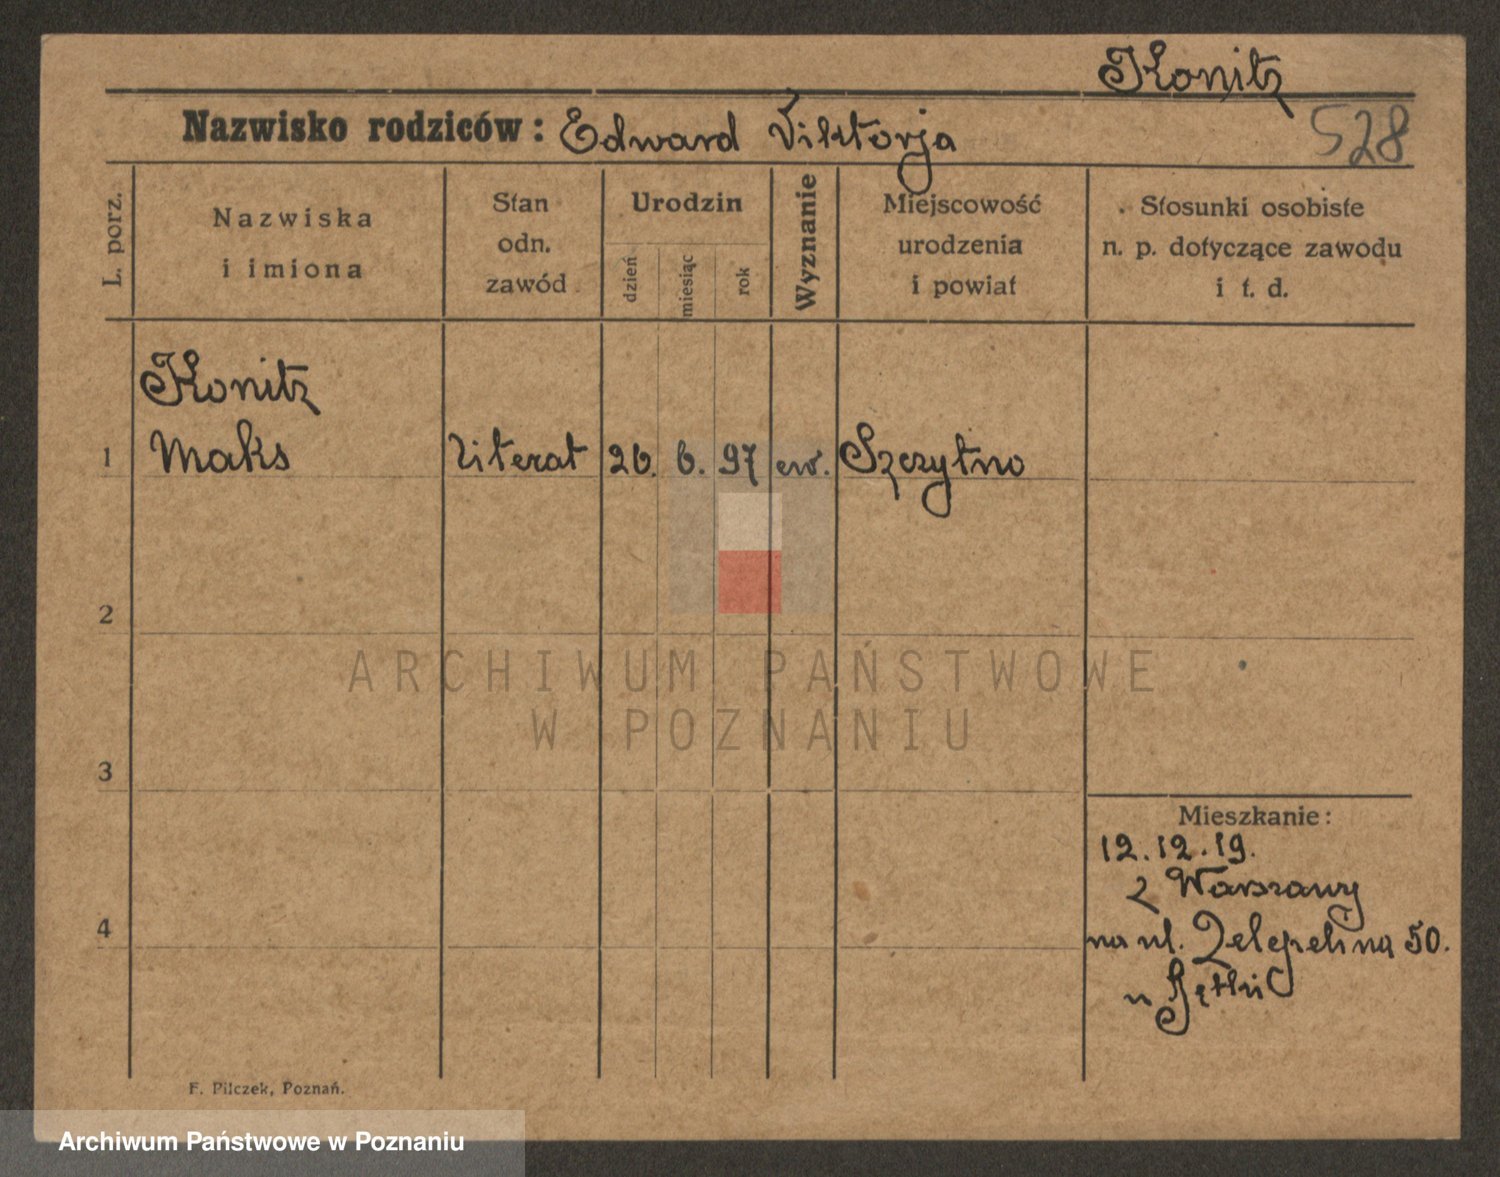 Konitz
Nazwisko rodziców: Edward Viktorja
528
L. porz.
Nazwiska
i imiona
Stan
odn.
zawód
Urodzin
dzień
miesiąc
rok
Wyznanie
Miejscowość
urodzenia
i powiat
Stosunki osobiste
n. p. dotyczące zawodu
i t. d.
Konitz
1 Maks literat 26. 6. 97 ew. Szczytno
2
3
4
Mieszkanie:
12.12.19.
z Warszawy
na ul. 50.
u
F. Pilczek, Poznań.
ARCHIWUM PAŃSTWOWE
W POZNANIU
Archiwum Państwowe w Poznaniu